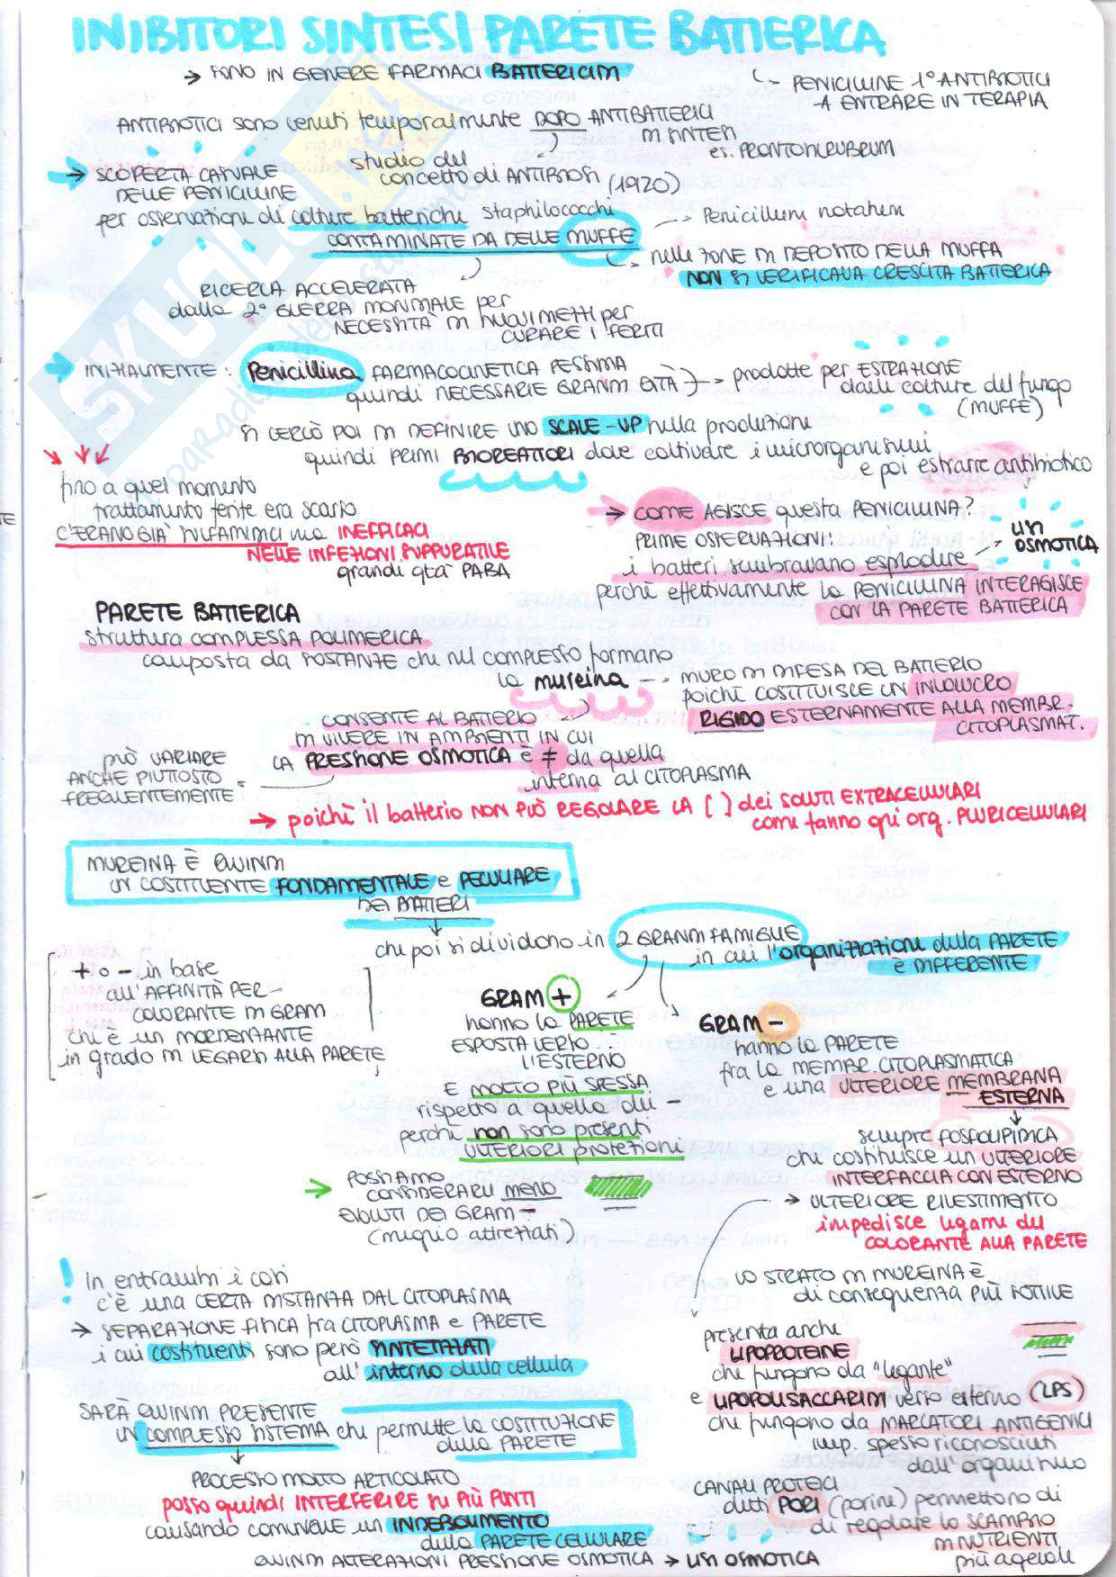 INIBITORI SINTESI PARETE BATTERICA
→ SONO IN GENERE FARMACI BATTERICIDI
PENICILLINE 1° ANTIBIOTICI
A ENTRARE IN TERAPIA
ANTIBIOTICI sono venuti temporalmente DOPO ANTIBATTERICI
DI SINTESI
es. PRONTOSILRUBRUM
studio del
concetto di ANTIBIOSI (1920)
→ SCOPERTA CASUALE
DELLE PENICILLINE
per osservazione di colture batteriche staphilococchi
CONTAMINATE DA DELLE MUFFE
Penicillium notatum
nelle ZONE DI DEPOSITO DELLA MUFFA
NON SI VERIFICAVA CRESCITA BATTERICA
RICERCA ACCELERATA
dalla 2ª GUERRA MONDIALE per
NECESSITÀ DI NUOVI METTI per
CURARE I FERITI
→ INIZIALMENTE: Penicillina FARMACOCINETICA PESSIMA
quindi NECESSARIE GRANDI QTÀ → prodotte per ESTRAZIONE
dalle colture del fungo
(MUFFE)
SI CERCÒ POI DI DEFINIRE UNO SCALE-UP nella produzione
quindi PRIMI BIOREATTORI dove coltivare i microrganismi
e poi estrarre antibiotico
fino a quel momento
trattamento ferite era scarso
C'ERANO GIÀ SULFAMIDICI ma INEFFICACI
NELLE INFEZIONI SUPPURATIVE
grandi qtà PABA
→ COME AGISCE questa PENICILLINA?
PRIME OSSERVAZIONI:
i batteri sembravano esplodere
LISI
OSMOTICA
perché effettivamente la PENICILLINA INTERAGISCE
CON LA PARETE BATTERICA
PARETE BATTERICA
struttura COMPLESSA POLIMERICA
composta da SOSTANZE che nel COMPLESSO formano
la mureina → MURO DI DIFESA DEL BATTERIO
poiché COSTITUISCE UN INVOLUCRO
RIGIDO ESTERNAMENTE ALLA MEMBR.
CITOPLASMAT.
CONSENTE AL BATTERIO
DI VIVERE IN AMBIENTI IN CUI
LA PRESSIONE OSMOTICA È ≠ da quella
interna al CITOPLASMA
può VARIARE
ANCHE PIUTTOSTO
FREQUENTEMENTE
→ poiché il batterio NON PUÒ REGOLARE LA [ ] dei SOLUTI EXTRACELLULARI
come fanno gli org. PLURICELLULARI
MUREINA È QUINDI
UN COSTITUENTE FONDAMENTALE e PECULIARE
DEI BATTERI
che poi si dividono in 2 GRANDI FAMIGLIE
in cui l'organizzazione della PARETE
È DIFFERENTE
+ o - in base
all'AFFINITÀ PER
COLORANTE DI GRAM
che È UN MORDENZANTE
in grado DI LEGARSI ALLA PARETE
GRAM +
hanno la PARETE
ESPOSTA VERSO
L'ESTERNO
E MOLTO PIÙ SPESSA
rispetto a quella dei -
perché non sono presenti
ULTERIORI protezioni
→ POSSIAMO
CONSIDERARLI MENO
EVOLUTI DEI GRAM -
(meglio attrezzati)
GRAM -
hanno la PARETE
fra la MEMBR. CITOPLASMATICA
e una ULTERIORE MEMBRANA
ESTERNA
sempre FOSFOLIPIDICA
che costituisce un ULTERIORE
INTERFACCIA CON ESTERNO
→ ULTERIORE RIVESTIMENTO
impedisce legame del
COLORANTE ALLA PARETE
LO STRATO DI MUREINA È
di conseguenza PIÙ SOTTILE
presenta anche
LIPOPROTEINE
che fungono da "legante"
e LIPOPOLISACCARIDI verso esterno (LPS)
che fungono da MARCATORI ANTIGENICI
imp. spesso riconosciuti
dall'organismo
CANALI PROTEICI
detti PORI (porine) permettono di
di regolare lo SCAMBIO
DI NUTRIENTI
più agevole
! In entrambi i casi
c'è una CERTA DISTANZA DAL CITOPLASMA
→ SEPARAZIONE FISICA fra CITOPLASMA e PARETE
i cui costituenti sono però SINTETIZZATI
all'interno della cellula
SARÀ QUINDI PRESENTE
UN COMPLESSO SISTEMA che permette la COSTITUZIONE
della PARETE
PROCESSO MOLTO ARTICOLATO
posso quindi INTERFERIRE SU PIÙ PUNTI
causando comunque un INDEBOLIMENTO
della PARETE CELLULARE
QUINDI ALTERAZIONI PRESSIONE OSMOTICA → LISI OSMOTICA